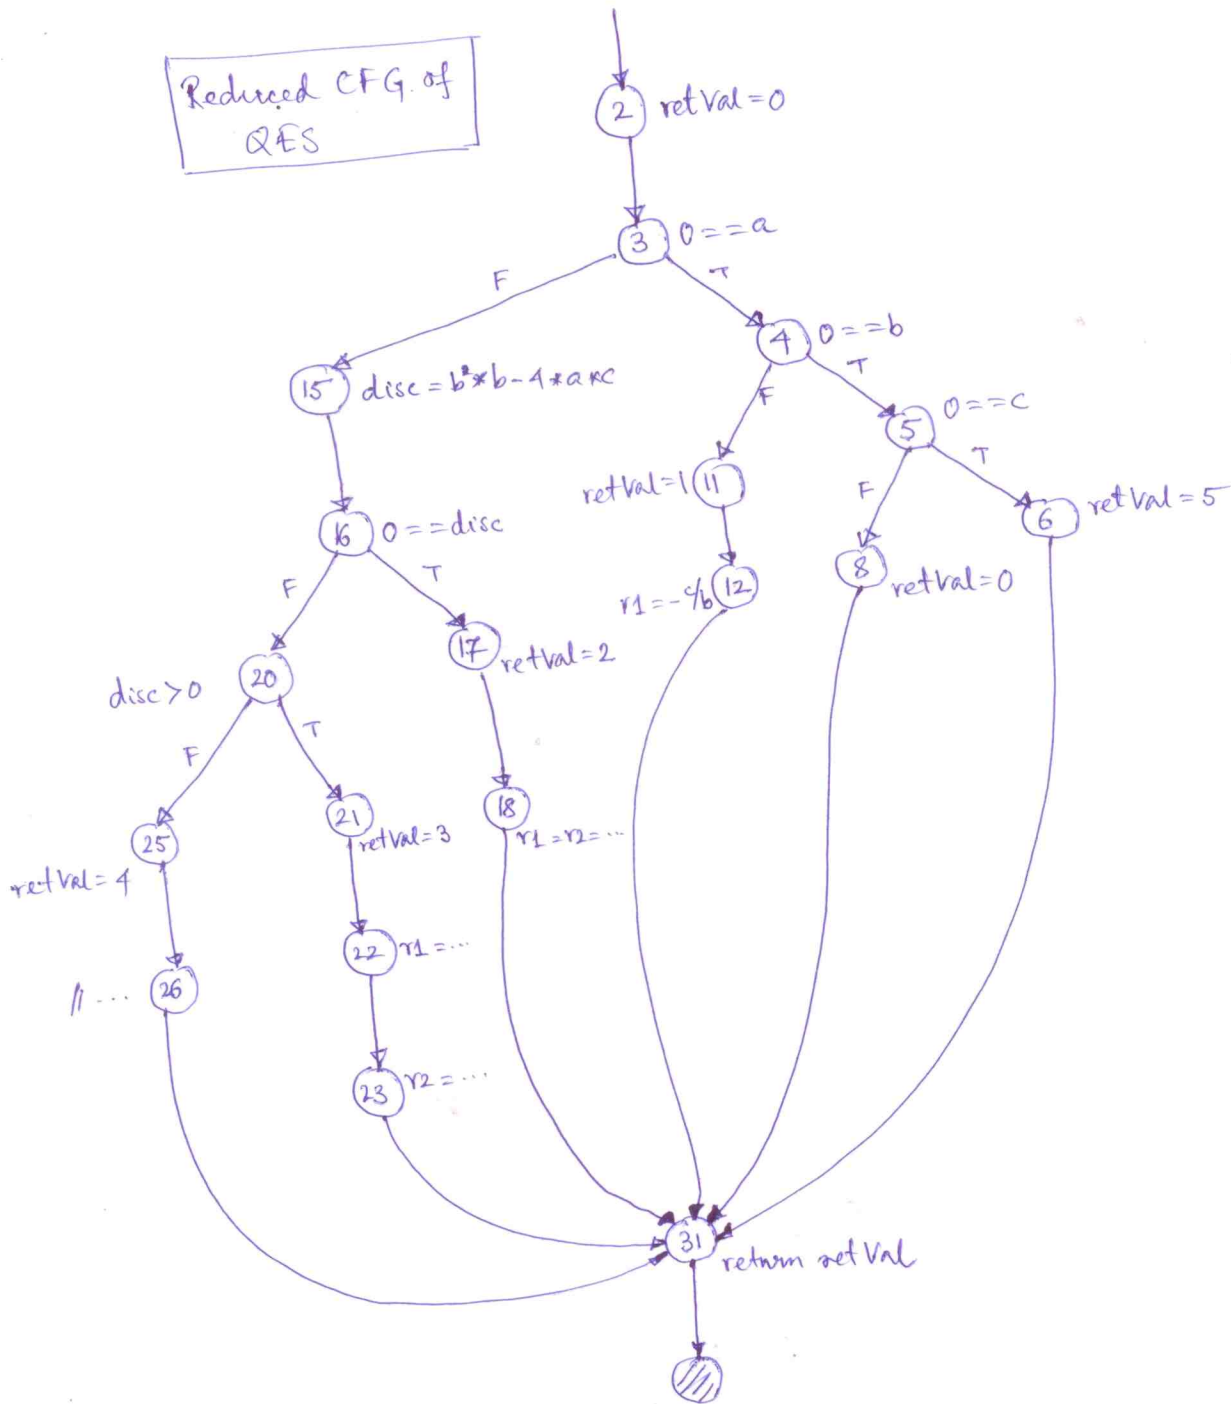 Reduced CFG of
QES
2 retVal=0
3 0==a
F
T
4 0==b
15 disc=b*b-4*a*c
F
T
5 0==c
retVal=1 11
F
T
6 retVal=5
16 0==disc
8 retVal=0
r1=-c/b 12
F
T
17 retVal=2
disc>0 20
F
T
18 r1=r2=...
21 retVal=3
25
retVal=4
22 r1=...
// ... 26
23 r2=...
31 return retVal